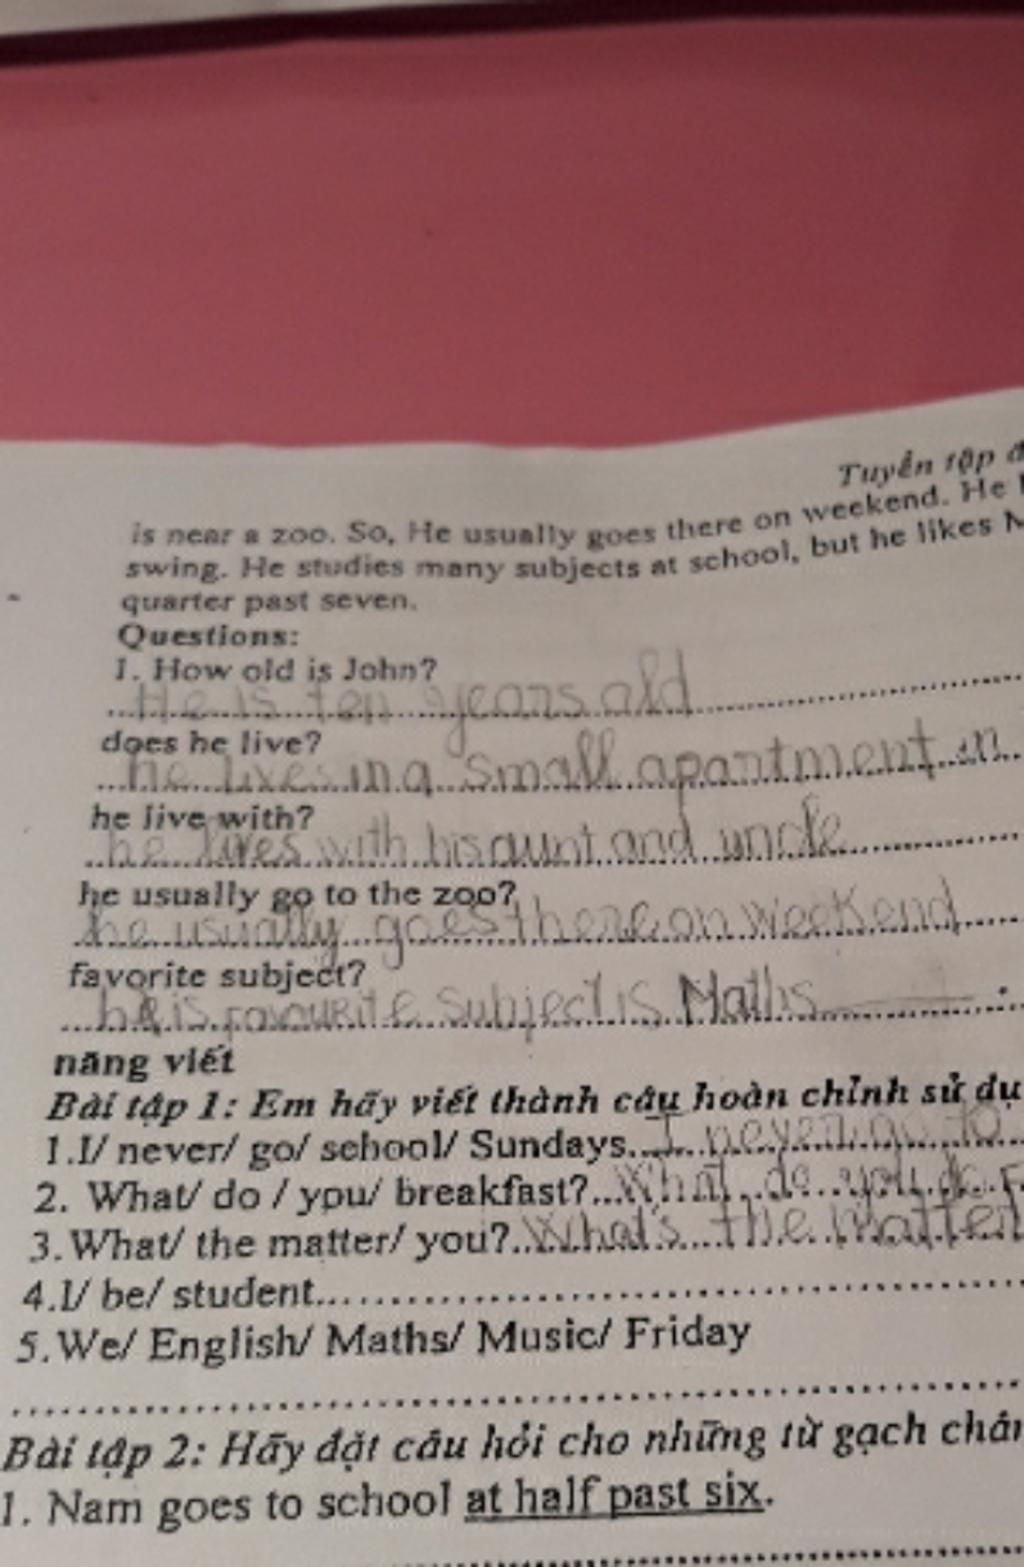 Tuyển tập đ
is near a zoo. So, He usually goes there on weekend. He
swing. He studies many subjects at school, but he likes M
quarter past seven.
Questions:
1. How old is John?
He is ten years old
does he live?
he lives in a small apartment in
he live with?
he lives with his aunt and uncle
he usually go to the zoo?
he usually goes there on weekend
favorite subject?
is favourite subject is Maths
năng viết
Bài tập 1: Em hãy viết thành câu hoàn chỉnh sử dụ
1.I/ never/ go/ school/ Sundays...I never go to
2. What/ do / you/ breakfast?...What do you do f
3. What/ the matter/ you?..What's the matter
4.I/ be/ student...
5.We/ English/ Maths/ Music/ Friday
Bài tập 2: Hãy đặt câu hỏi cho những từ gạch châ
1. Nam goes to school at half past six.